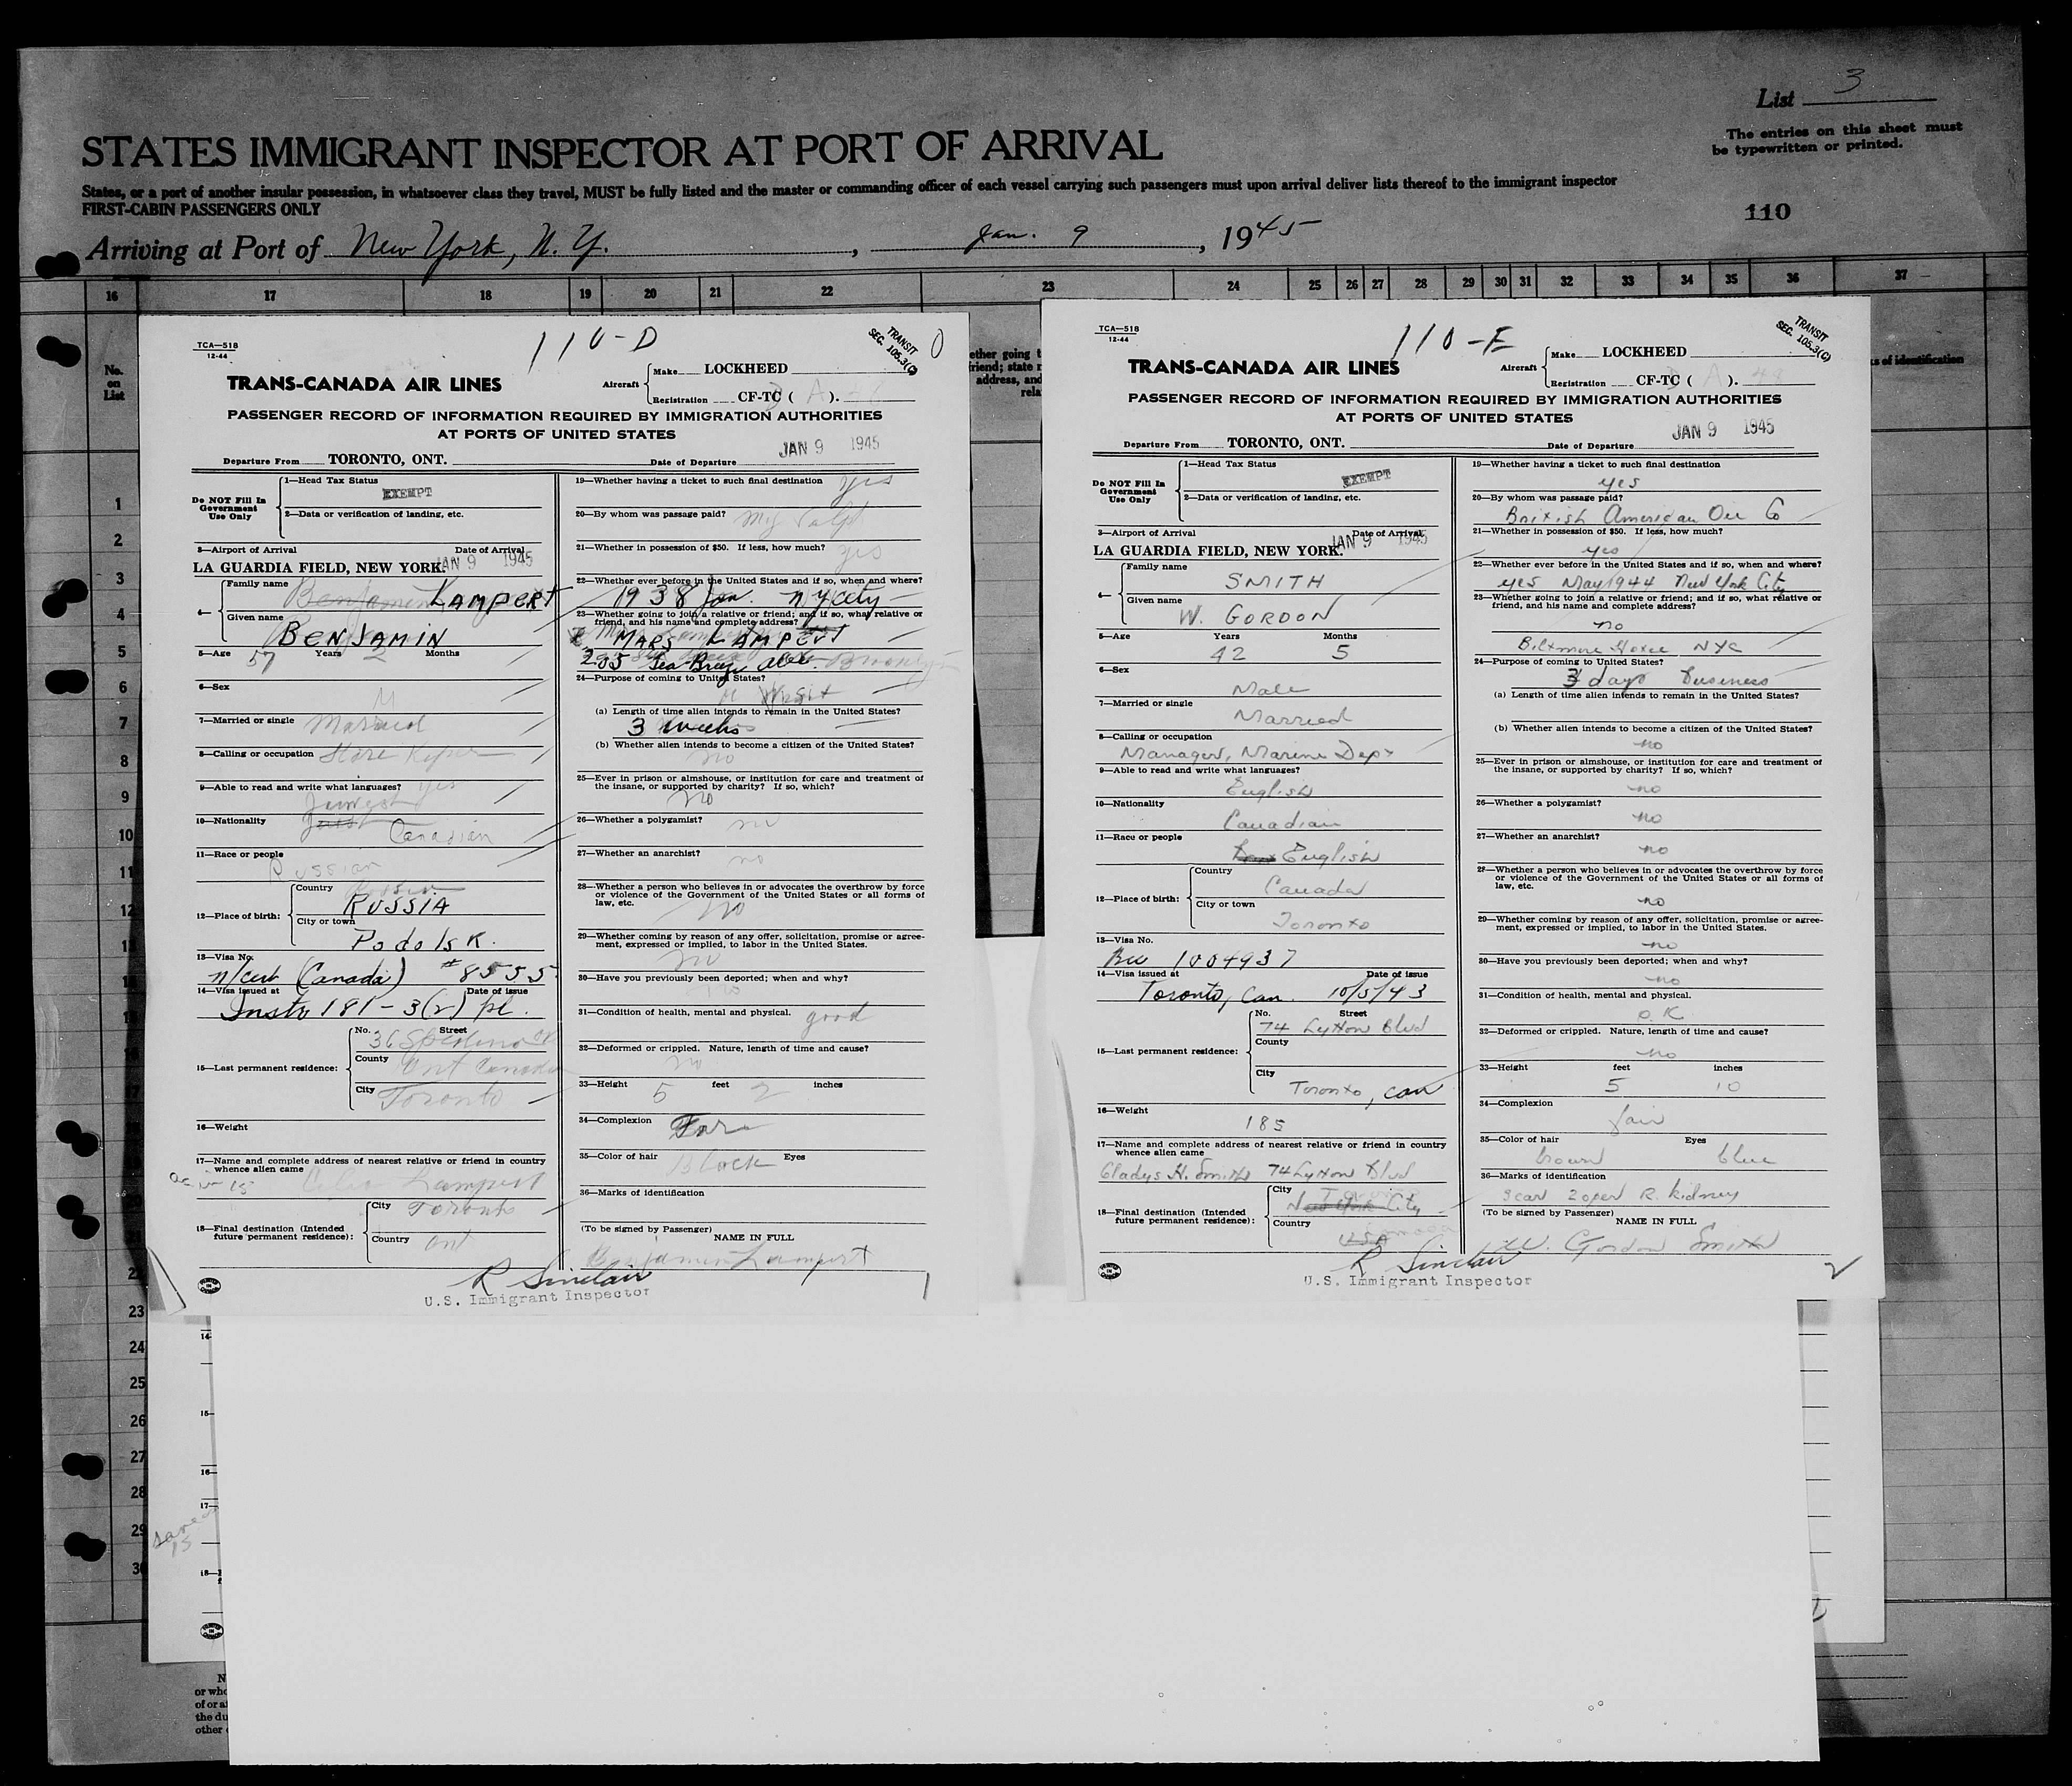 List 3
The entries on this sheet must
be typewritten or printed.
STATES IMMIGRANT INSPECTOR AT PORT OF ARRIVAL
States, or a port of another insular possession, in whatsoever class they travel, MUST be fully listed and the master or commanding officer of each vessel carrying such passengers must upon arrival deliver lists thereof to the immigrant inspector
FIRST-CABIN PASSENGERS ONLY
110
Arriving at Port of New York, N.Y., Jan. 9, 1945
16 17 18 19 20 21 22 23 24 25 26 27 28 29 30 31 32 33 34 35 36 37
No.
on
List
1
2
3
4
5
6
7
8
9
10
11
12
23
24
25
26
27
28
29
30
TCA—518
12-44
110-D
TRANSIT
SEC. 105.3(C)
TRANS-CANADA AIR LINES
Aircraft
Make LOCKHEED
Registration CF-TC ( A ). 48
PASSENGER RECORD OF INFORMATION REQUIRED BY IMMIGRATION AUTHORITIES
AT PORTS OF UNITED STATES
Departure From TORONTO, ONT. Date of Departure JAN 9 1945
Do NOT Fill In
Government
Use Only
1—Head Tax Status
EXEMPT
2—Data or verification of landing, etc.
3—Airport of Arrival Date of Arrival
LA GUARDIA FIELD, NEW YORK. JAN 9 1945
4— Family name Benjamin LAMPERT
Given name BENJAMIN
5—Age 57 Years 2 Months
6—Sex M
7—Married or single Married
8—Calling or occupation Store Keeper
9—Able to read and write what languages? yes
Juwesh
10—Nationality Canadian
11—Race or people
Russian
12—Place of birth: Country
RUSSIA
City or town
Podolsk.
13—Visa No.
n/cert (Canada) #8555
14—Visa issued at Date of issue
Instr 181-3(r) pl.
15—Last permanent residence: No. Street
36
County Ont Canada
City Toronto
16—Weight
17—Name and complete address of nearest relative or friend in country
whence alien came
Lampert
18—Final destination (Intended
future permanent residence): City Toronto
Country Ont
19—Whether having a ticket to such final destination yes
20—By whom was passage paid? My
21—Whether in possession of $50. If less, how much? yes
22—Whether ever before in the United States and if so, when and where?
1938 Jan. N Y city
23—Whether going to join a relative or friend; and if so, what relative or
friend, and his name and complete address?
MARS LAMPERT
205 Sea Breeze Ave. Brooklyn
24—Purpose of coming to United States?
Visit
(a) Length of time alien intends to remain in the United States?
3 weeks
(b) Whether alien intends to become a citizen of the United States?
no
25—Ever in prison or almshouse, or institution for care and treatment of
the insane, or supported by charity? If so, which?
no
26—Whether a polygamist? no
27—Whether an anarchist?
no
28—Whether a person who believes in or advocates the overthrow by force
or violence of the Government of the United States or all forms of
law, etc.
no
29—Whether coming by reason of any offer, solicitation, promise or agree-
ment, expressed or implied, to labor in the United States.
no
30—Have you previously been deported; when and why?
no
31—Condition of health, mental and physical. good
32—Deformed or crippled. Nature, length of time and cause?
no
33—Height 5 feet 2 inches
34—Complexion
35—Color of hair Black Eyes
36—Marks of identification
(To be signed by Passenger)
NAME IN FULL
Benjamin Lampert
R Sinclair
U.S. Immigrant Inspector
TCA—518
12-44
110-E
TRANSIT
SEC. 105.3(C)
TRANS-CANADA AIR LINES
Aircraft
Make LOCKHEED
Registration CF-TC ( A ). 48
PASSENGER RECORD OF INFORMATION REQUIRED BY IMMIGRATION AUTHORITIES
AT PORTS OF UNITED STATES
Departure From TORONTO, ONT. Date of Departure JAN 9 1945
Do NOT Fill In
Government
Use Only
1—Head Tax Status
EXEMPT
2—Data or verification of landing, etc.
3—Airport of Arrival Date of Arrival
LA GUARDIA FIELD, NEW YORK. JAN 9 1945
4— Family name
SMITH
Given name
W. GORDON
5—Age Years Months
42 5
6—Sex
Male
7—Married or single
Married
8—Calling or occupation
Manager, Marine Dept
9—Able to read and write what languages?
English
10—Nationality
Canadian
11—Race or people
English
12—Place of birth: Country
Canada
City or town
Toronto
13—Visa No.
1004937
14—Visa issued at Date of issue
Toronto, Can. 10/5/43
15—Last permanent residence: No. Street
74 Lytton Blvd
County
City
Toronto, Can
16—Weight
185
17—Name and complete address of nearest relative or friend in country
whence alien came
Gladys H. Smith 74 Lytton Blvd
18—Final destination (Intended
future permanent residence): City
New York City
Country
USA
19—Whether having a ticket to such final destination
yes
20—By whom was passage paid?
British American Oil Co
21—Whether in possession of $50. If less, how much?
yes
22—Whether ever before in the United States and if so, when and where?
yes May 1944 New York City
23—Whether going to join a relative or friend; and if so, what relative or
friend, and his name and complete address?
no
Biltmore Hotel NYC
24—Purpose of coming to United States?
3 days business
(a) Length of time alien intends to remain in the United States?
(b) Whether alien intends to become a citizen of the United States?
no
25—Ever in prison or almshouse, or institution for care and treatment of
the insane, or supported by charity? If so, which?
no
26—Whether a polygamist?
no
27—Whether an anarchist?
no
28—Whether a person who believes in or advocates the overthrow by force
or violence of the Government of the United States or all forms of
law, etc.
no
29—Whether coming by reason of any offer, solicitation, promise or agree-
ment, expressed or implied, to labor in the United States.
no
30—Have you previously been deported; when and why?
no
31—Condition of health, mental and physical.
O.K
32—Deformed or crippled. Nature, length of time and cause?
no
33—Height feet inches
5 10
34—Complexion
fair
35—Color of hair Eyes
brown blue
36—Marks of identification
scar 2 oper R. kidney
(To be signed by Passenger)
NAME IN FULL
W. Gordon Smith
R Sinclair
U.S. Immigrant Inspector